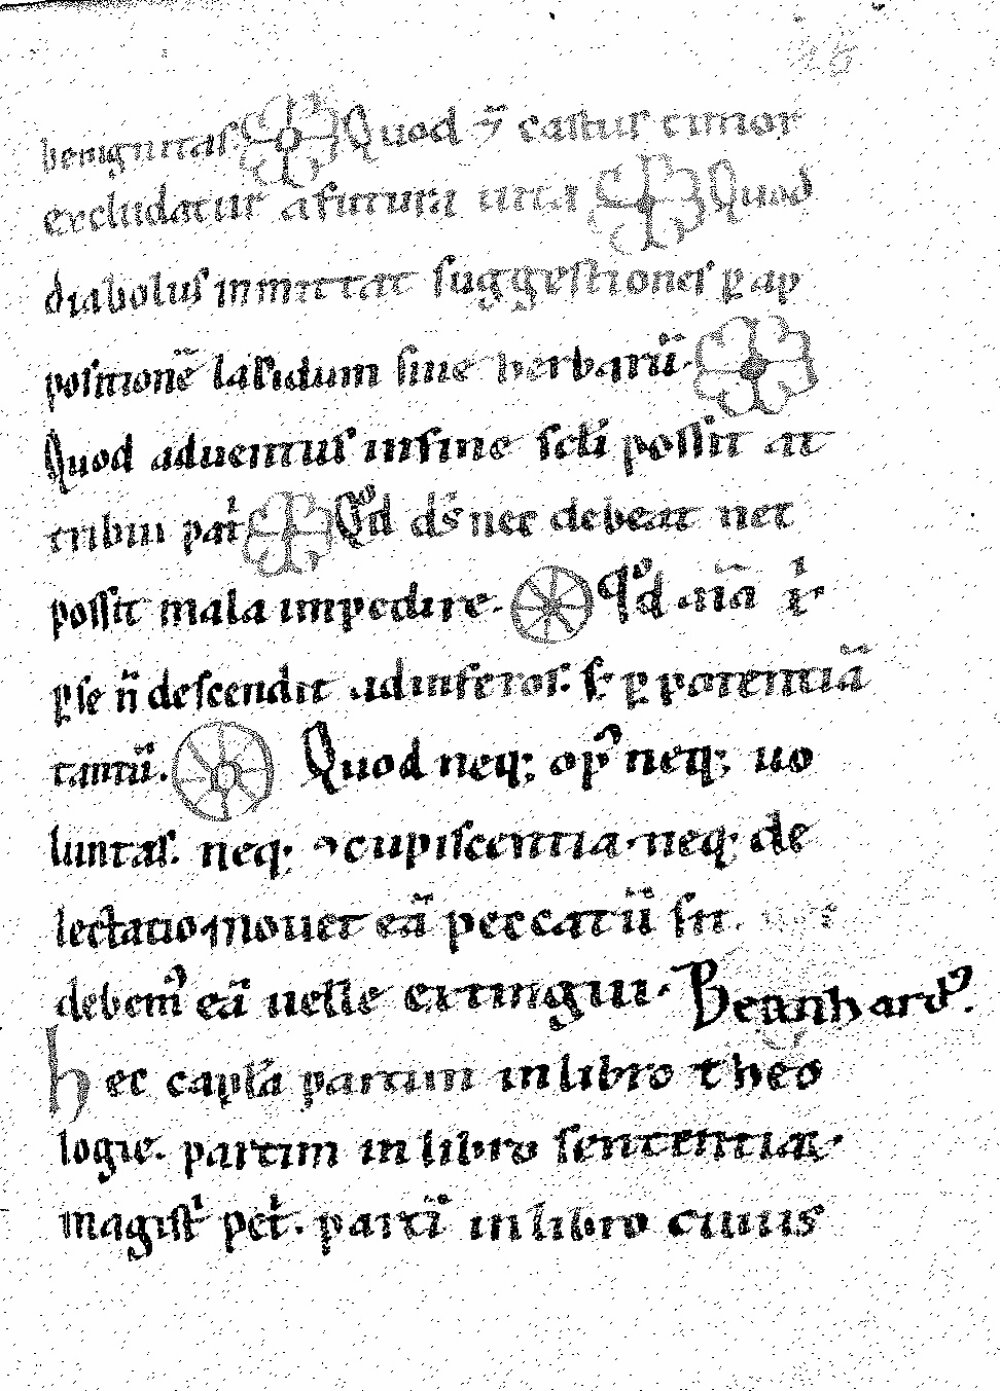 benignitas Quod ⁊ castus timor
excludatur a futura uita Quod
diabolus inmittat suggestiones ꝑ ap
positionē lapidum siue herbarū.
Quod aduentus in fine scłi possit at
tribui patͥ Qͦd ds̄ nec debeat nec
possit mala impedire. qͦd aīa xͥ
ꝑ se n̄ descendit ad inferos. sꝫ ꝑ potentiā
tantū. Quod neq; opꝰ neq; uo
luntas. neq; ꝯcupiscentia. neq; de
lectatio mouet eā peccatū sit.
debemꝰ eā uelle extingui. Bernhardꝰ.
hec capľa partim in libro theo
logie. partim in libro sententiaꝝ.
magistͥ pet̄. partī in libro cuius